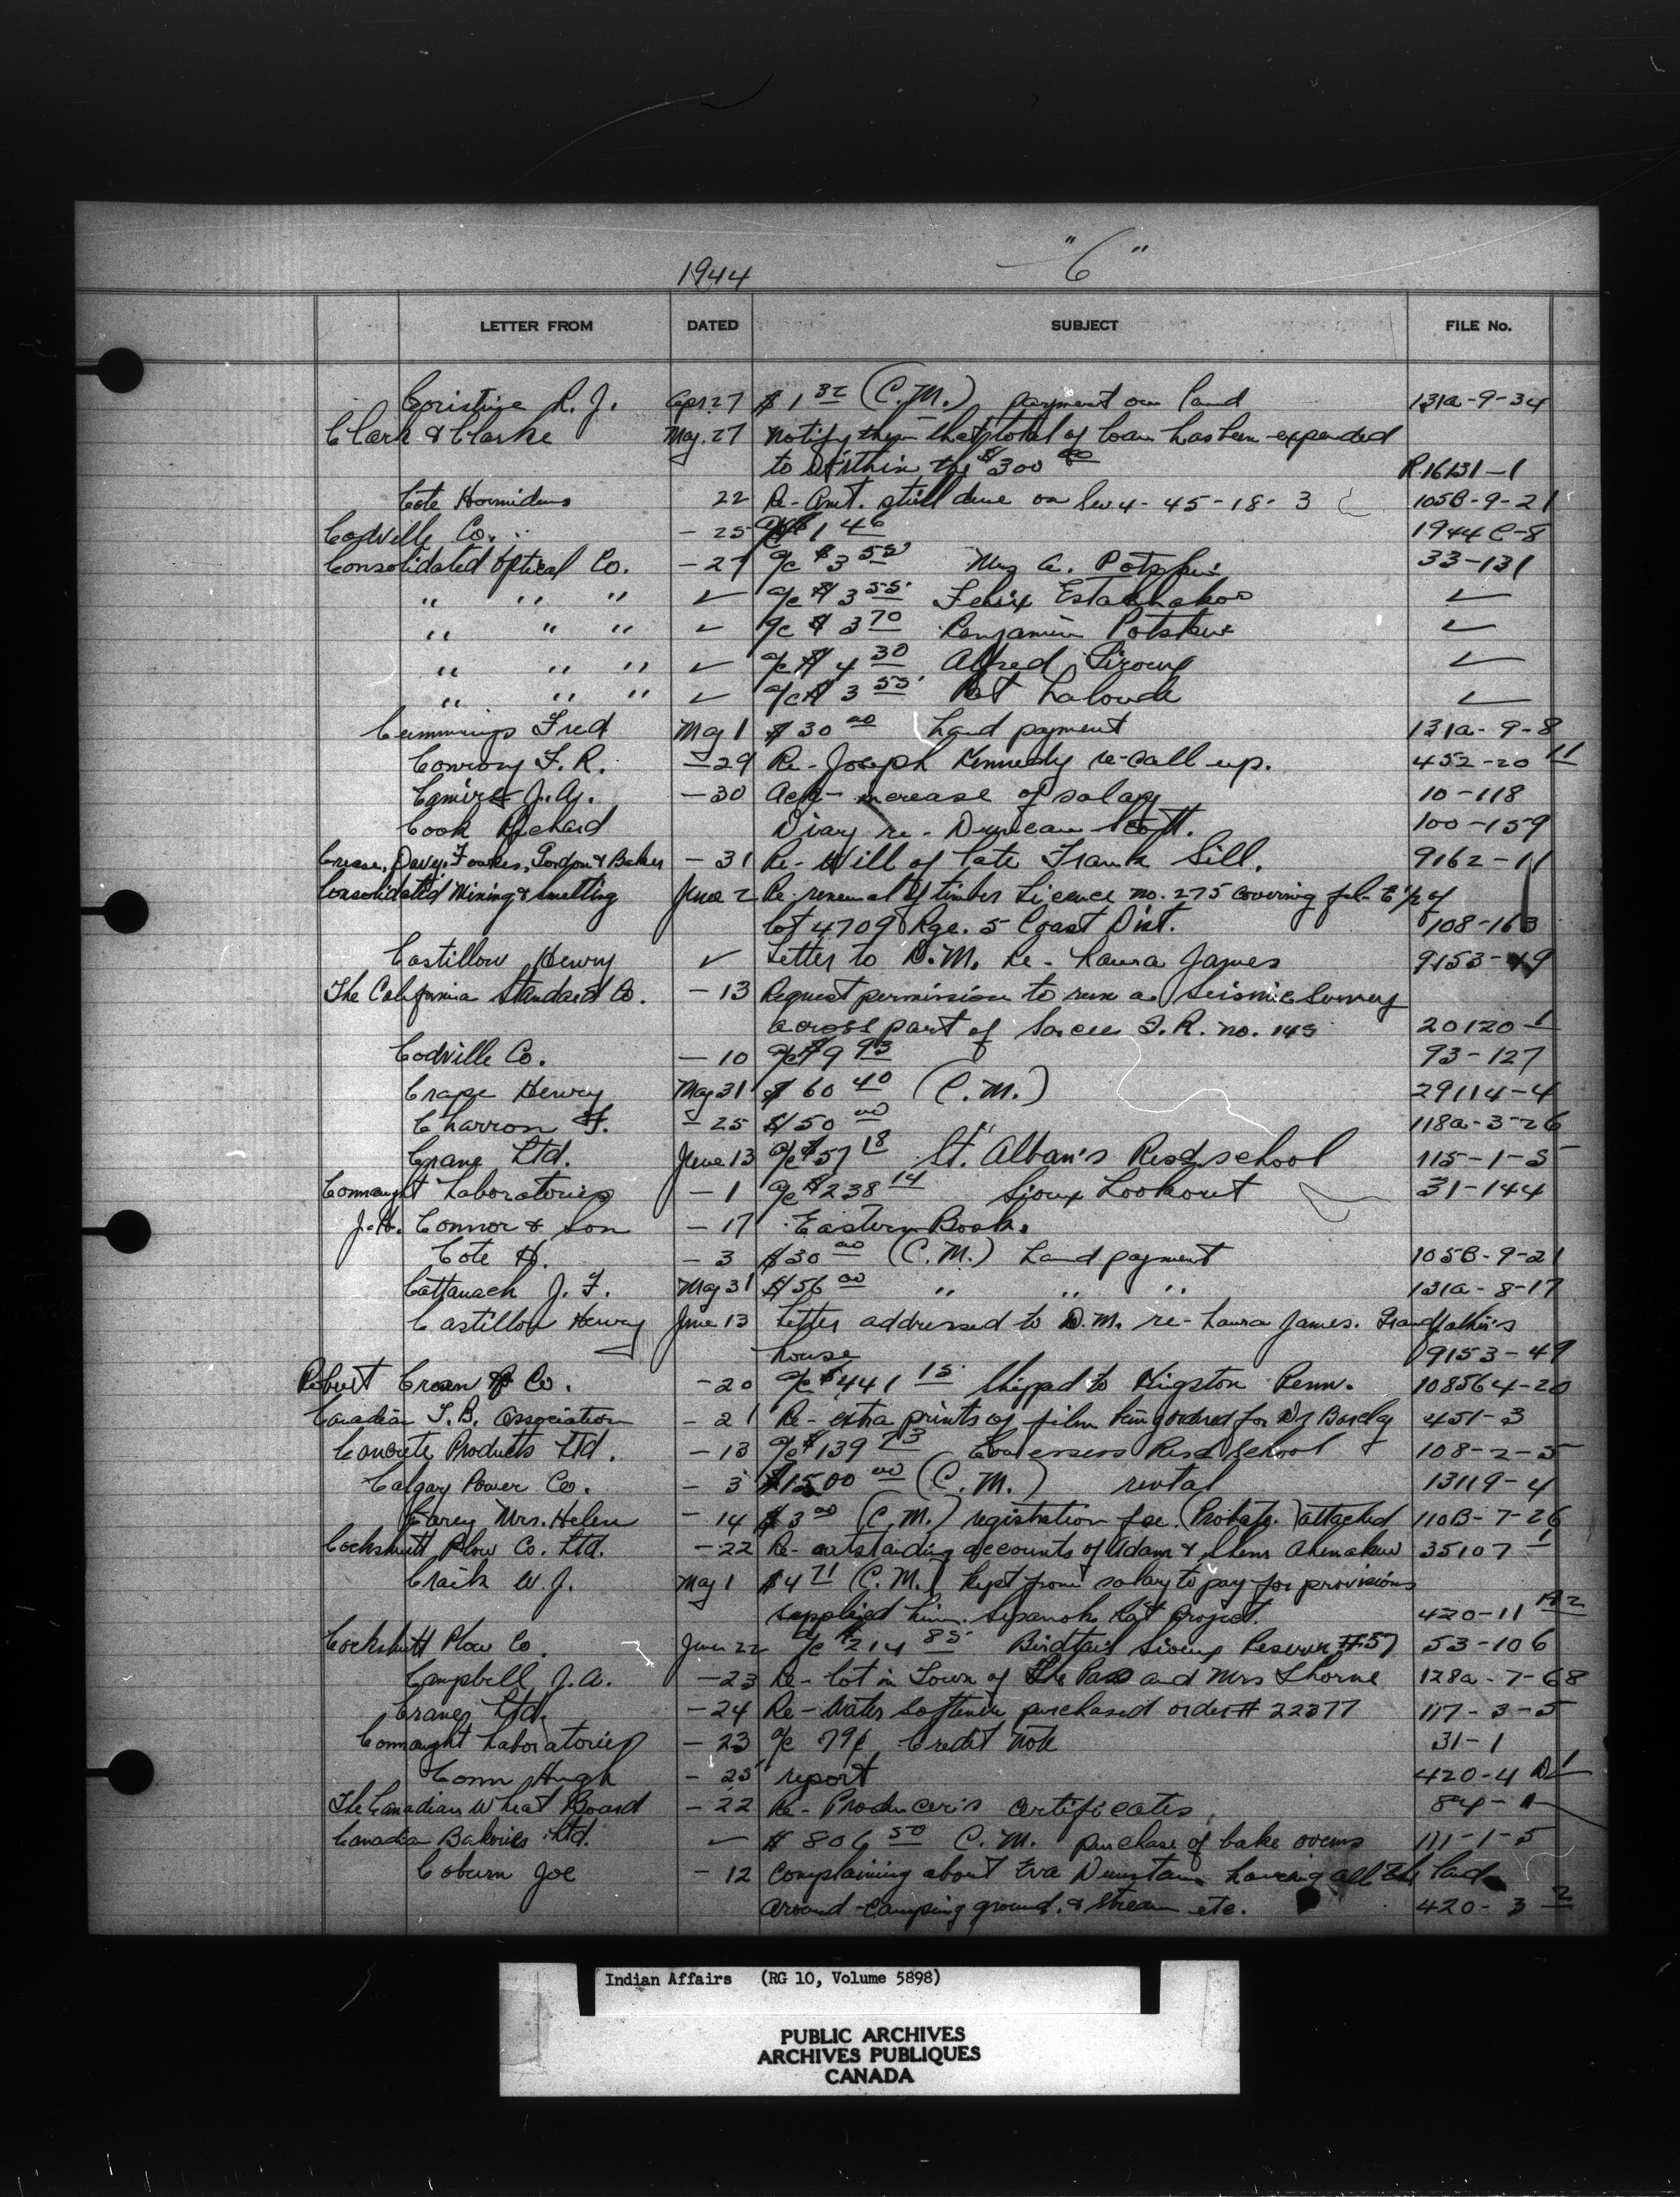 1944 "C"
LETTER FROM DATED SUBJECT FILE No.
Cristine R. J. Apr 27 $1 32 (C.M.) payment on land 131a-9-34
Clark & Clarke May 27 notify them that total of loan has been expended
to within the $300 00 R.16131-1
Cote Hormidas 22 Re- Amt. still due on Sw 4-45-18-3 105B-9-21
Codville Co. - 25 a/c $1 46 1944 C-8
Consolidated Optical Co. - 27 a/c $3 55 Mrs A. 33-131
" " " ✓ a/c $3 55 Felix ✓
" " " ✓ a/c $3 70 Benjamin ✓
" " " ✓ a/c $4 30 Alfred ✓
" " " ✓ a/c $3 55 Pat ✓
Cummings Fred May 1 $30 00 Land payment 131a-9-8
Conroy F. R. - 29 Re- Joseph Kennedy re-call up. 452-20 11
J. A. - 30 Ack- increase of salary 10-118
Cook Richard Diary re- Duncan Scott. 100-159
Crease, Davey, Fowkes, Gordon & Baker - 31 Re- Will of late Frank Sill. 9162-11
Consolidated Mining & Smelting June 2 Re- renewal of timber Licence no. 275 covering E 1/2 of
Lot 4709 Rge. 5 Coast Dist. 108-163
Castillou Henry ✓ Letter to D.M. Re- Laura James 9153-49
The California Standard Co. - 13 Request permission to run a Seismic Survey
across part of Sarcee I.R. no. 145 20120-1
Codville Co. - 10 a/c $9 93 93-127
Crape Henry May 31 $60 40 (C.M.) 29114-4
Charron F. - 25 $150 00 " 118a-3-26
Crane Ltd. June 13 a/c $57 18 St. Alban's Resd. school 115-1-5
Connaught Laboratories - 1 a/c $238 14 Sioux Lookout 31-144
J. H. Connor & Son - 17 Eastern Book.
Cote H. - 3 $30 00 (C.M.) Land payment 105B-9-21
Cattanach J. F. May 31 $56 00 " " " 131a-8-17
Castillou Henry June 13 Letter addressed to D.M. re- Laura James. Grandfather's
house 9153-49
Robert Crean & Co. - 20 a/c $441 15 Shipped to Kingston Penn. 108564-20
Canadian T.B. Association - 21 Re- extra prints of film being ordered for Dr Barclay 451-3
Concrete Products Ltd. - 13 a/c $139 23 Resd School 108-2-5
Calgary Power Co. - 3 $1500 00 (C.M.) rental 13119-4
Carey Mrs. Helen - 14 $3 00 (C.M.) registration fee. (Probate.) attached 110B-7-26
Cockshutt Plow Co. Ltd. - 22 Re- outstanding accounts of Adam & Shem Ahenakew 35107-1
Craik W. J. May 1 $4 71 (C.M.) kept from salary to pay for provisions
supplied him. Sipanok Rat Project. 420-11 A2
Cockshutt Plow Co June 22 a/c $214 85 Birdtail Sioux Reserve #57 53-106
Campbell J. A. - 23 Re- lot in Town of The Pas and Mrs Thorne 128a-7-68
Crane Ltd. - 24 Re- Water Softener purchased order # 22377 117-3-5
Connaught Laboratories - 23 a/c 79¢ Credit Note 31-1
Conn Hugh - 25 report 420-4 D1
The Canadian Wheat Board - 22 Re- Producer's Certificates. 84-1
Canada Bakeries Ltd. ✓ $806 50 C.M. purchase of bake ovens 111-1-5
Coburn Joe - 12 Complaining about Eva having all the land
around camping ground, & stream etc. 420-3 2
Indian Affairs (RG 10, Volume 5898)
PUBLIC ARCHIVES
ARCHIVES PUBLIQUES
CANADA